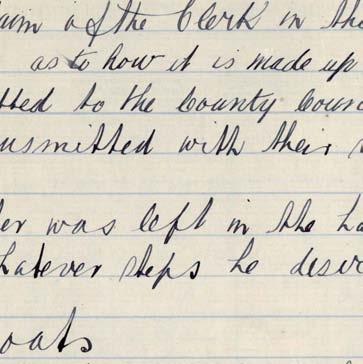 aim of the Clerk in the
as to how it is made up
tted to the County Coun
nsmitted with their
er was left in the ha
hatever steps he desir
oats